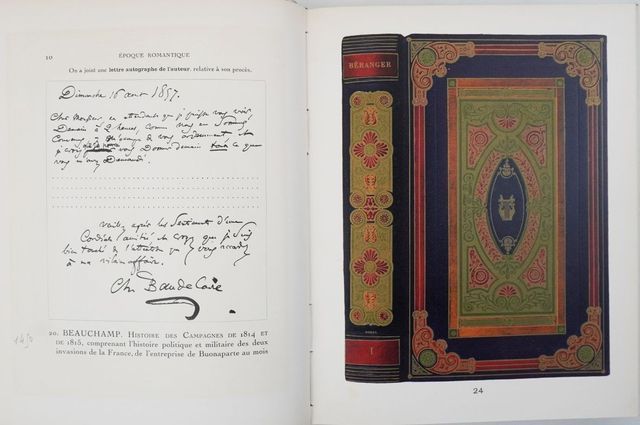 10
ÉPOQUE ROMANTIQUE
On a joint une lettre autographe de l'auteur, relative à son procès.
Dimanche 16 aout 1857.
Cher Monsieur, en attendant que je puisse vous voir
Demain à 2 heures, comme nous en sommes
Convenus, je
je crois vous Donner demain tout ce que
vous m'avez Demandé.
veuillez agréer les Sentiments d'une
Cordiale amitié et croyez que je suis
bien touché de l'attention que vous accordez
à ma vilaine affaire.
Ch. Baudelaire
20. BEAUCHAMP. Histoire des Campagnes de 1814 et
de 1815, comprenant l'histoire politique et militaire des deux
invasions de la France, de l'entreprise de Buonaparte au mois
BÉRANGER
I
24